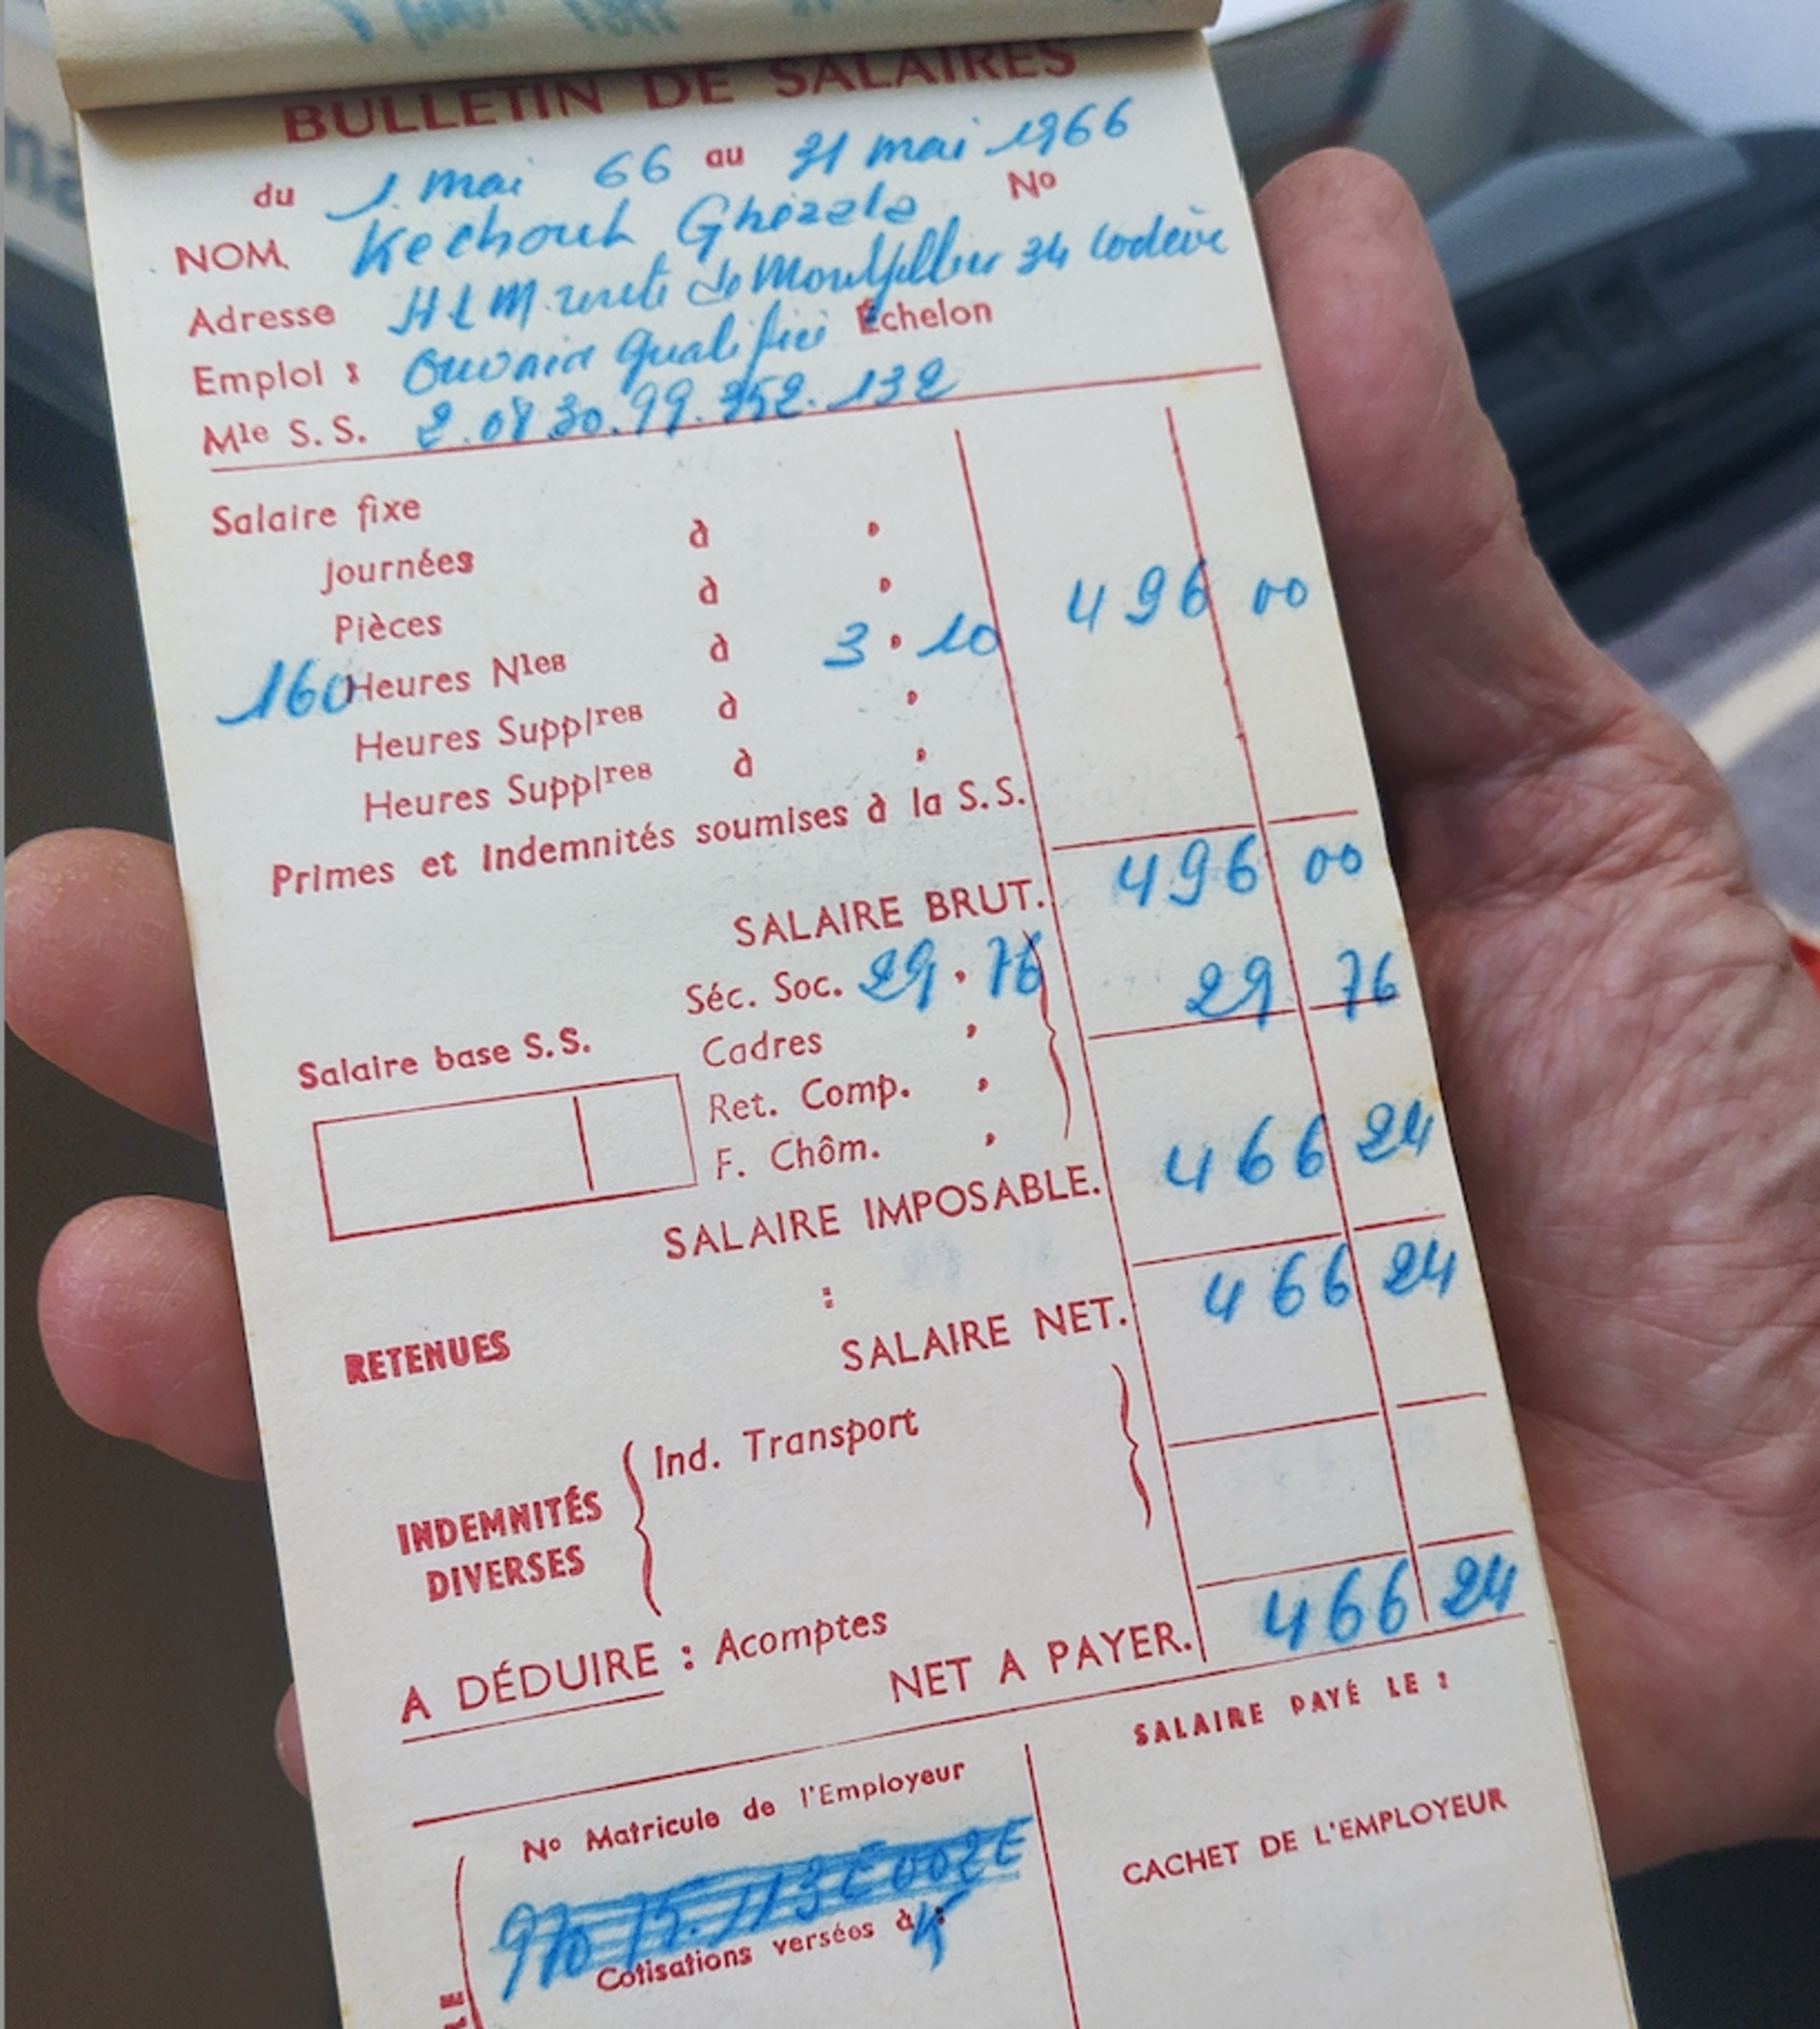 BULLETIN DE SALAIRES
du 1 mai 66 au 31 mai 1966
NOM. Kechouh Ghezala No
Adresse HLM route de Montpellier 34 Lodève
Emploi : Ouvrier qualifié Échelon
Mle S. S. 2.08 30.99.352.132
Salaire fixe
Journées à
Pièces à
160 Heures Nles à 3 10 496 00
Heures Supplres à
Heures Supplres à
Primes et Indemnités soumises à la S. S.
SALAIRE BRUT. 496 00
Séc. Soc. 29.76 29 76
Salaire base S. S.
Cadres
Ret. Comp.
F. Chôm.
SALAIRE IMPOSABLE. 466 24
RETENUES :
SALAIRE NET. 466 24
INDEMNITÉS DIVERSES
Ind. Transport
A DÉDUIRE : Acomptes
NET A PAYER. 466 24
No Matricule de l'Employeur
SALAIRE PAYÉ LE :
Cotisations versées à :
CACHET DE L'EMPLOYEUR